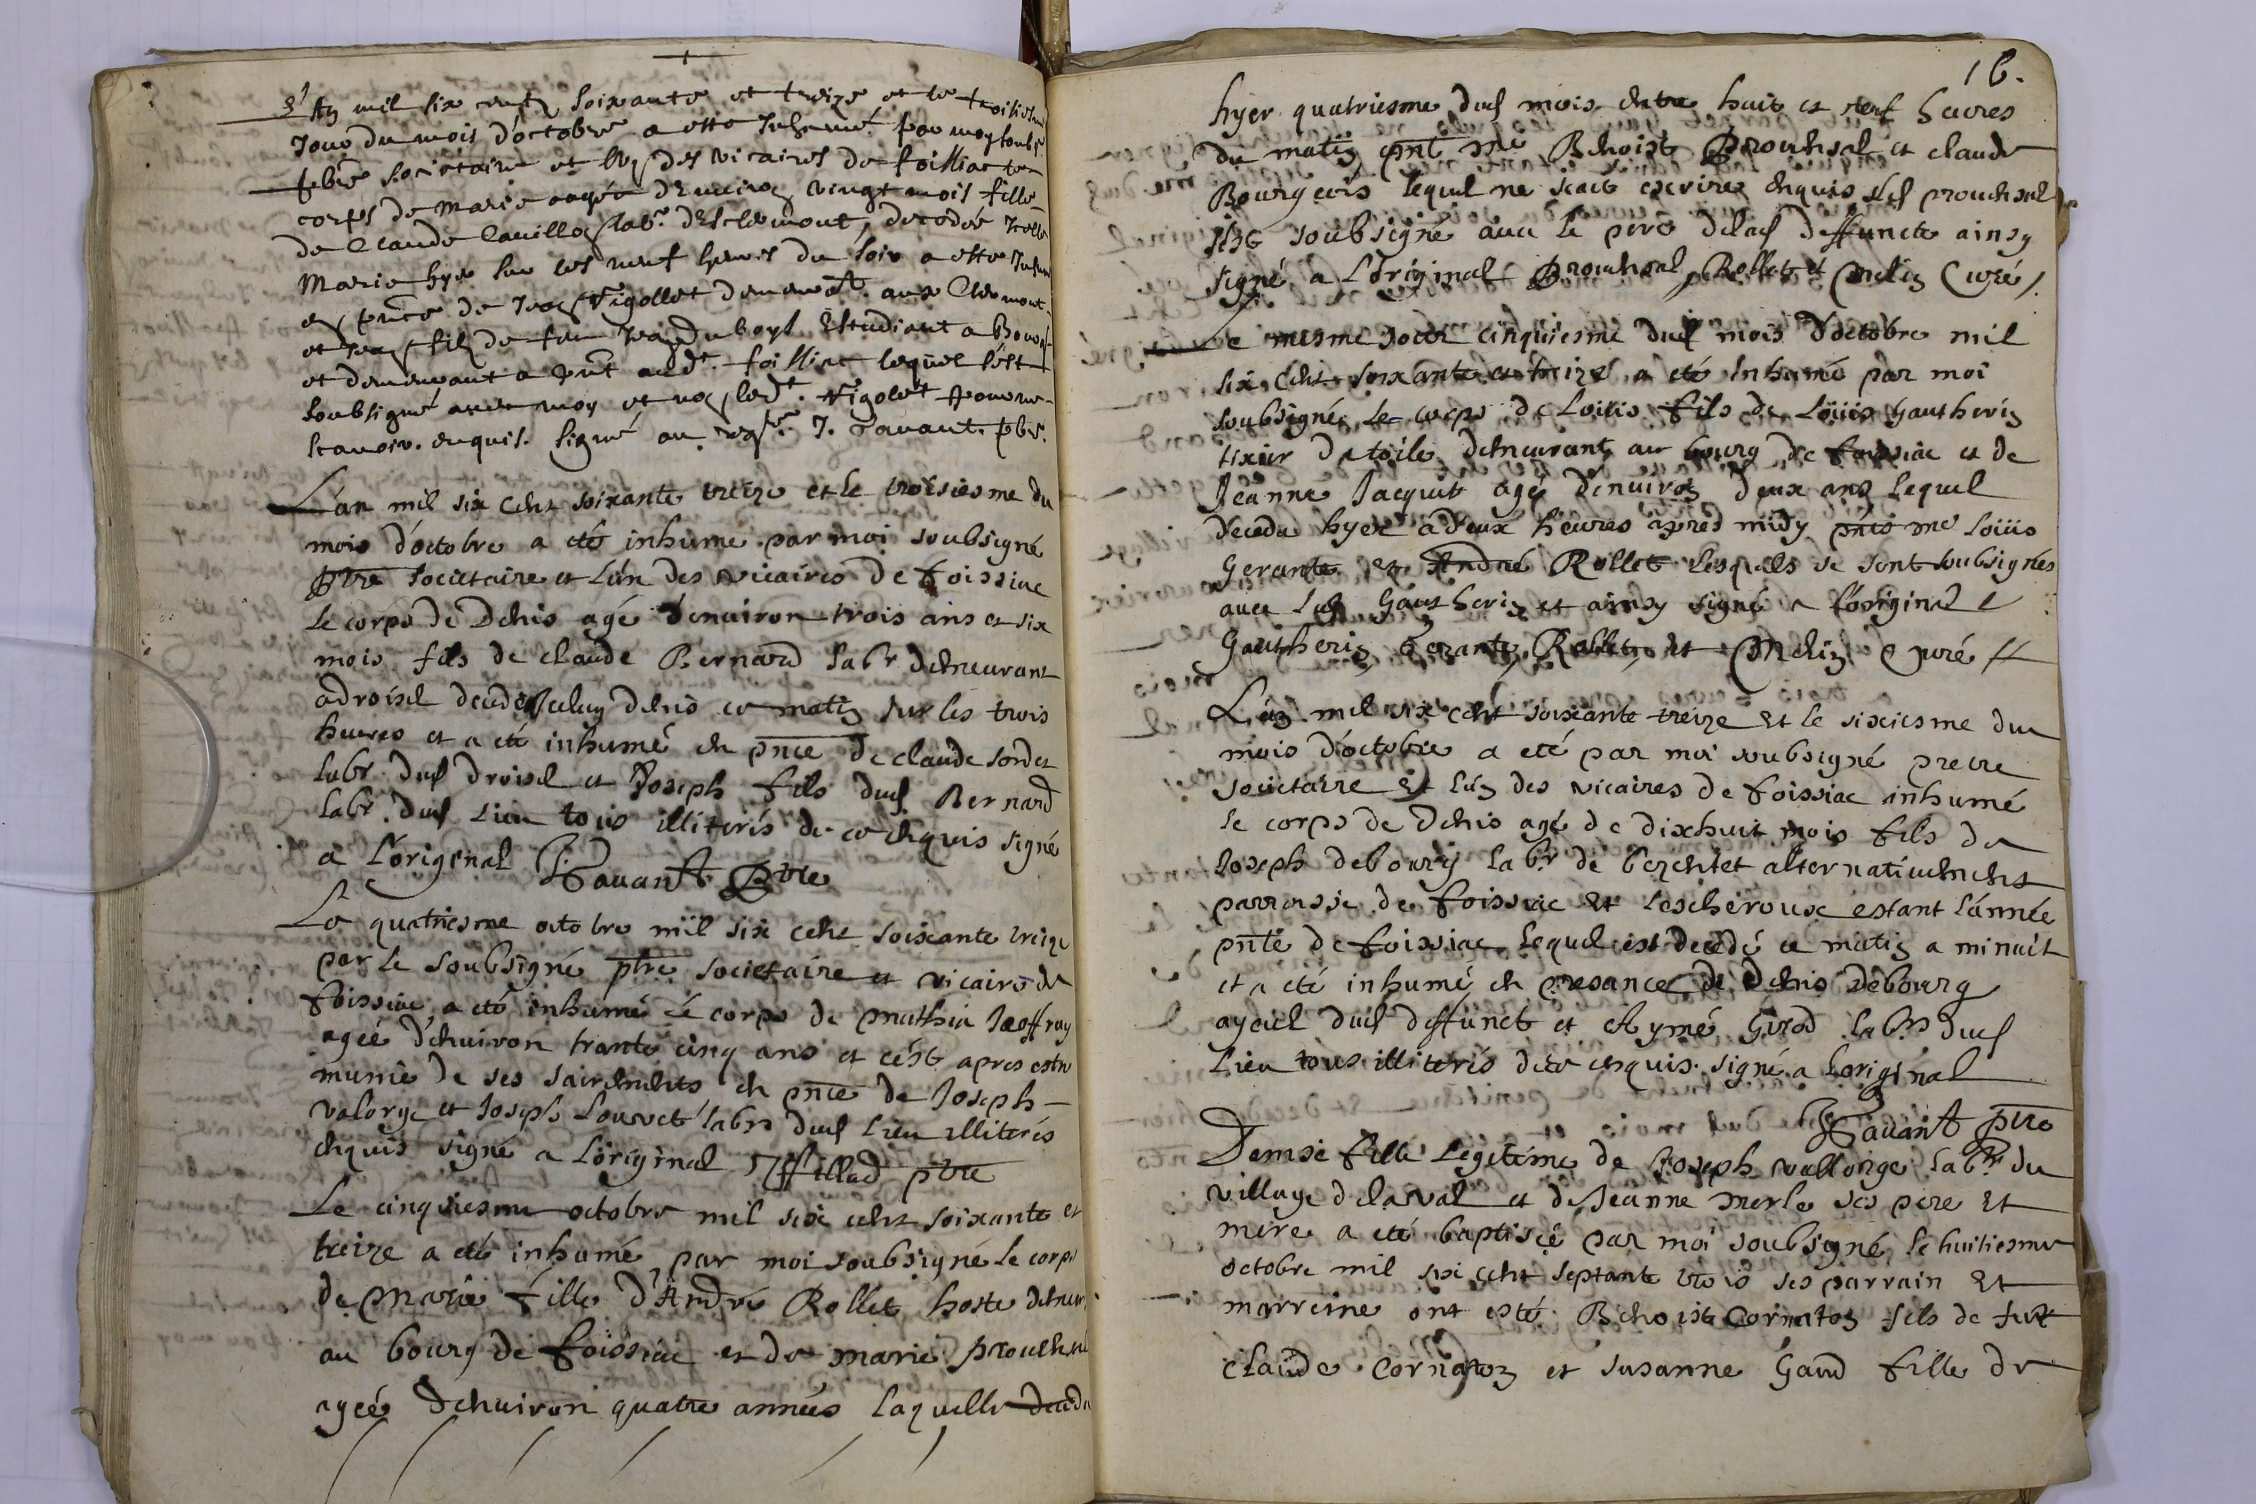 L'An mil six centz soixante et treize et le troisiesme
Jour du mois d'octobre a este Inhumé par moy soubsé
pbre societaire et l'un des vicaires de foissiac le
corps de Marie aagée d'environ vingt mois fille
de Claude Cavillon labr. d'Esclermont, decedée icelle
Marie hyer sur les neuf heures du soir a este Inhumé
en pnce de Jean Vigollet demeurāt aux Clermont
et Jean filz de feu Jean duboys Estudiant a Bourg
et demeurant a pnt audt. foissiac lequel s'est
soubsigné avec moy et non ledt. Vigolet pour ne
scavoir. enquis. signé au regre. J. Pavant. pbre.
L'an mil six cent soixante treize et le troisiesme du
mois d'octobre a eté inhumé par moi soubsigné
ptre societaire et l'un des vicaires de foissiac
le corps de Denis agé d'environ trois ans et six
mois fils de claude Bernard labr demeurant
a droisel decedé iceluy denis ce matin sur les trois
heures et a eté inhumé en pnce de claude sordet
labr. dud droisel et Joseph fils dud Bernard
labr. dud lieu tous illiterés de ce enquis signé
a l'original Pavant ptre
Le quatriesme octobre mil six cent soixante treize
par le soubsigné ptre societaire et vicaire de
foissiac a eté inhumé le corps de mathia Jaoffray
ageé d'environ trante cinq ans et c'est apres estre
munie de ses sacrements en pnce de Joseph
valorge et Joseph Louvet labrs dud lieu illiterés
enquis signé a l'original Tiffillad ptre
Le cinquiesme octobre mil six cent soixante et
treize a eté inhumé par moi soubsigné le corps
de Marie fille d'André Rollet hoste demeur
au bourg de foissiac et de marie prouhnsal
ageé d'environ quatre années laquelle deceda
16.
hyer quatriesme dud mois entre huit et neuf heures
du matin pnt me Benoist Prouhnsal et claude
Bourgeois lequel ne scait escrire enquis led prouhnsal
s'est soubsigné avec le pere delad deffuncte ainsy
signé a l'original Prouhnsal, Rollet et Melin Curé /.
Le mesme jour cinquiesme dud mois d'octobre mil
six cent soixante et treize a eté Inhumé par moi
soubsigné le corps de Loüis fils de Loüis Gautherin
tixier de toile demeurant au bourg de foissiac et de
Jeanne Jacquet agé d'environ deux ans lequel
deceda hyer a deux heures apres midy pnts me Loüis
Gerante et André Rollet lesquels se sont soubsignés
avec led Gautherin et ainsy signé a l'original
Gautherin, Gerante, Rollet, et Melin Curé //
L'an mil six cent soixante treize Et le sixiesme du
mois d'octobre a eté par moi soubsigné pretre
societaire Et l'un des vicaires de foissiac inhumé
le corps de Denis agé de dixhuit mois fils de
Joseph debourg labr de berentet alternativement
parroisse de foissiac Et Lescheroux estant l'année
pnte de foissiac lequel est decedé ce matin a minuit
et a eté inhumé en presance de Denis Debourg
ayeul dud deffunct et Aymé Girod labrs dud
lieu tous illiterés de ce enquis. signé a l'original
Pavant ptre
Demse fille Legitime de Joseph vallorge labr du
village delaval et de Jeanne merle ses pere Et
mere a eté baptisée par moi soubsigné le huitiesme
octobre mil six cent septante trois ses parrain Et
marreine ont esté Benoist Cornaton fils de feu
claude Cornaton et susanne Gaud fille de